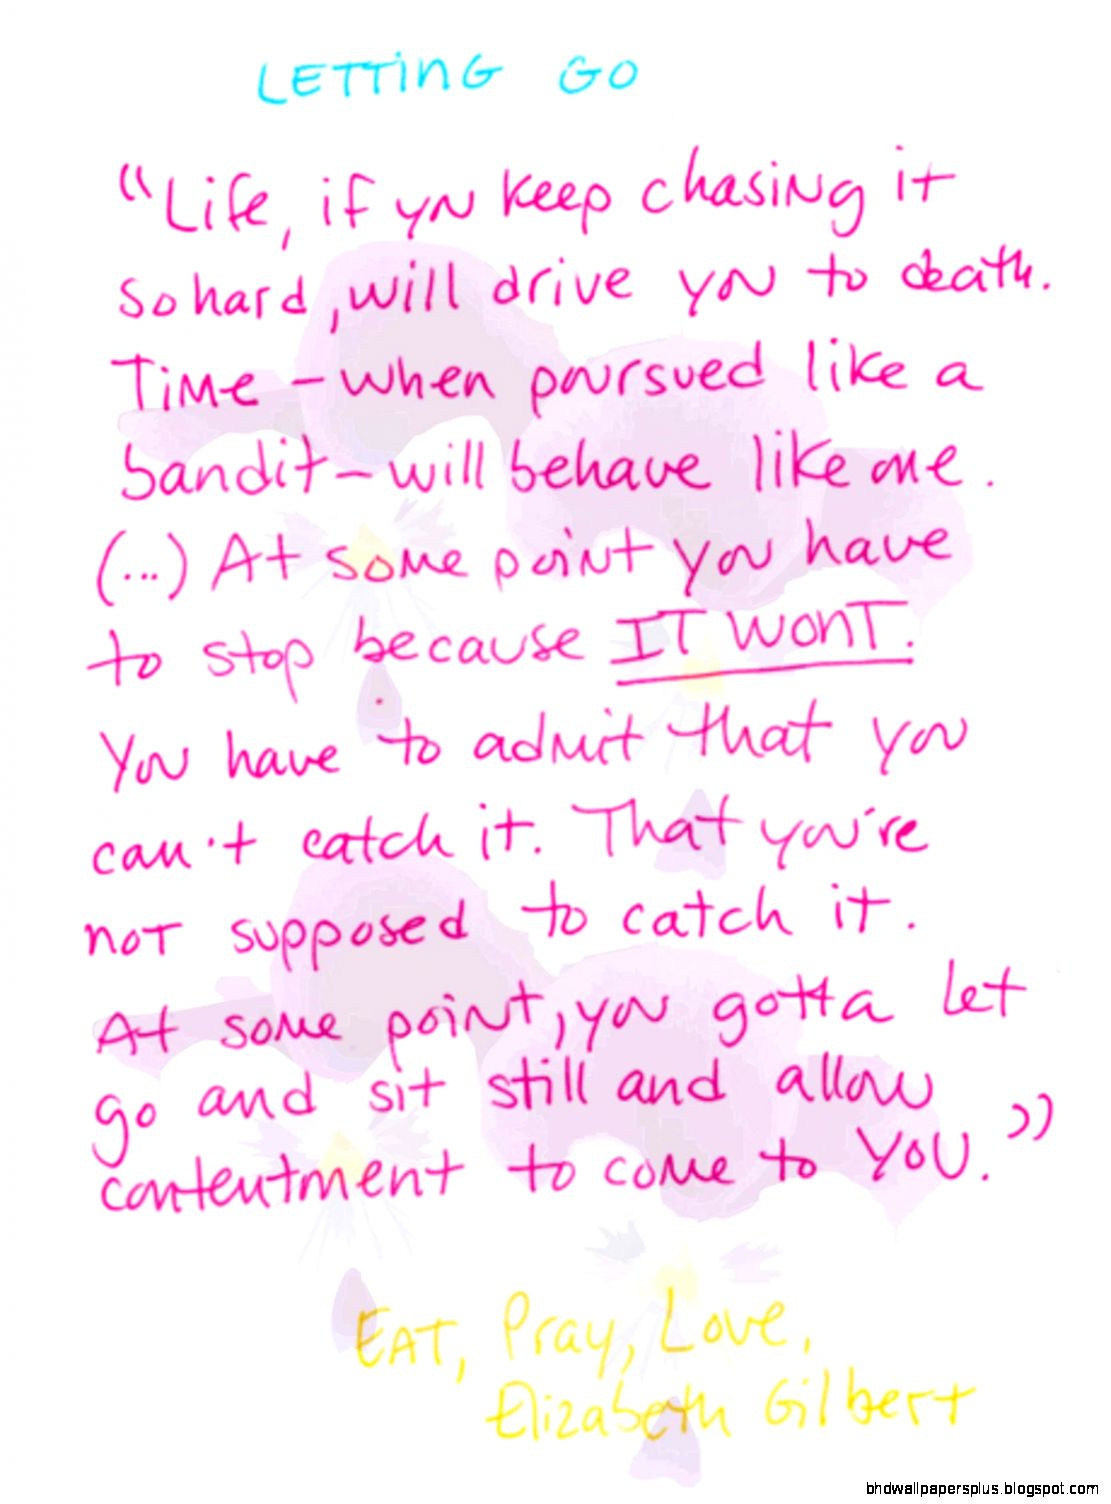 LETTING GO
"Life, if you keep chasing it
so hard, will drive you to death.
Time – when poursued like a
bandit – will behave like one.
(...) At some point you have
to stop because IT WONT.
You have to admit that you
can't catch it. That you're
not supposed to catch it.
At some point, you gotta let
go and sit still and allow
contentment to come to YOU."
EAT, Pray, Love,
Elizabeth Gilbert
bhdwallpapersplus.blogspot.com